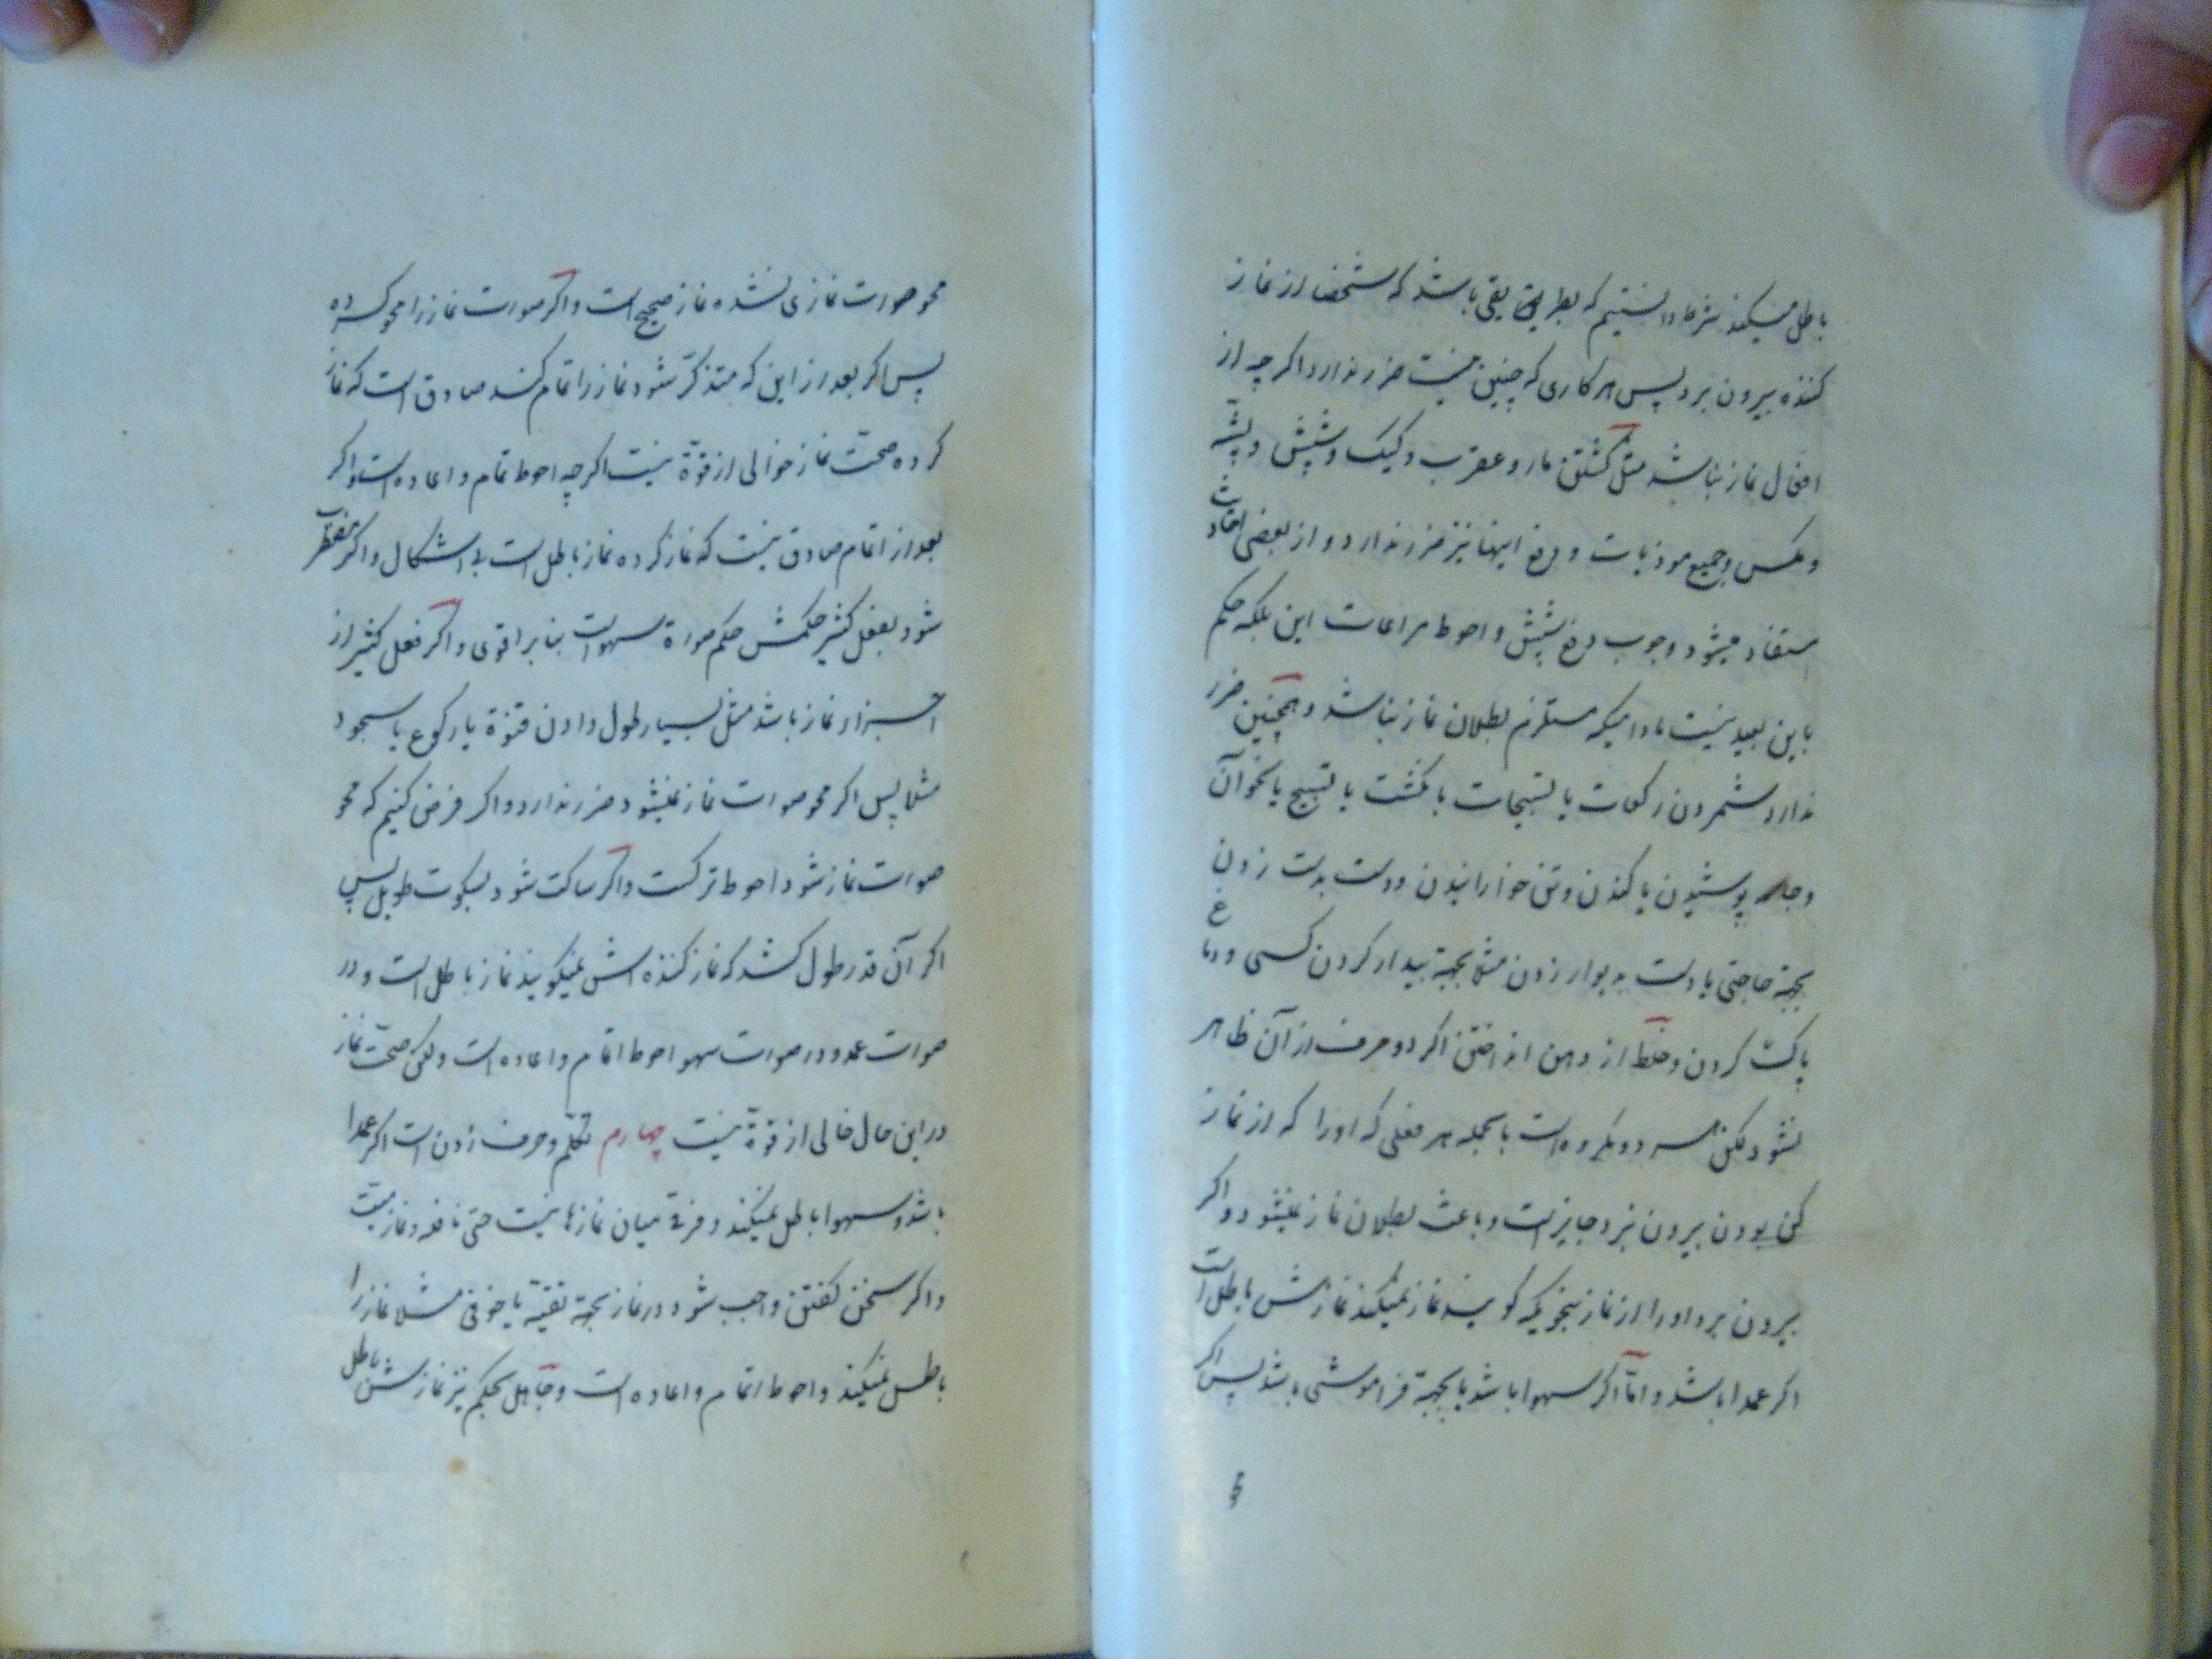 باطل میکند شرعا دانستیم که بطریق یقی باشد که شخص از نماز
کننده بیرون برد پس هر کاری که چنین نیست ضرر ندارد اگر چه از
افعال نماز نباشد مثل کشتن مار و عقرب و کیک و شپش و پشه
و مکس و جمیع موذیات و دفع اینها نیز ضرر ندارد و از بعضی
مستفاد میشود وجوب دفع شپش و احوط مراعات این بلکه حکم
باین بعید نیست مادامیکه مستلزم بطلان نماز نباشد و همچنین ضرر
ندارد شمردن رکعات یا تسبیحات بانکشت یا تسبیح یا نحو آن
و جامه پوشیدن یا کندن و تن خوارانیدن و دست بدست زدن
بجهة حاجتی یا دست بدیوار زدن مثلا بجهة بیدار کردن کسی و دماغ
پاک کردن و از دهن انداختن اگر دو حرف از آن ظاهر
نشود لکن مکروه است بالجمله هر فعلی که اورا که از نماز
کن بودن بیرون نبرد جایز است و باعث بطلان نماز نمیشود و اگر
بیرون برد اورا از نماز بنحویکه گویند نماز نمیکند نمازش باطل است
اگر عمدا باشد و اما اگر سهوا باشد یا بجهة فراموشی باشد پس اگر
محو
محو صورت نمازی نشده نماز صحیح است و اگر صورت نماز را محو کرده
پس اگر بعد از این که متذکر شود نماز را تمام کند صادق است که نماز
کرده صحت نماز خوالی از قوة نیست اگر چه احوط تمام و اعاده است و اگر
بعد از اتمام صادق نیست که نماز کرده نماز باطل است بی اشکال و اگر مضطر
شود بفعل کثیر حکمش حکم صورة سهو است بنابر اقوی و اگر فعل کثیر از
اجزاء نماز باشد مثل بسیار طول دادن قنوة یا رکوع یا سجود
مثلا پس اگر محو صورت نماز نمیشود ضرر ندارد و اگر فرض کنیم که محو
صورت نماز شود احوط ترکست و اگر ساکت شود بسکوت طویل پس
اگر آن قدر طول کشد که نماز کننده اش نمیگویند نماز باطل است و در
صورت عمد و در صورت سهو احوط اتمام و اعاده است و لکن صحت نماز
در این حال خالی از قوة نیست چهارم تکلم و حرف زدن است اگر عمدا
باشد و سهوا باطل نمیکند و فرقی میان نمازها نیست حتی نافله و نماز میت
و اگر سخن گفتن واجب شود در نماز بجهة تقیه یا خوفی مثلا نماز را
باطل نمیکند و احوط اتمام و اعاده است و جاهل بحکم نیز نمازش باطل